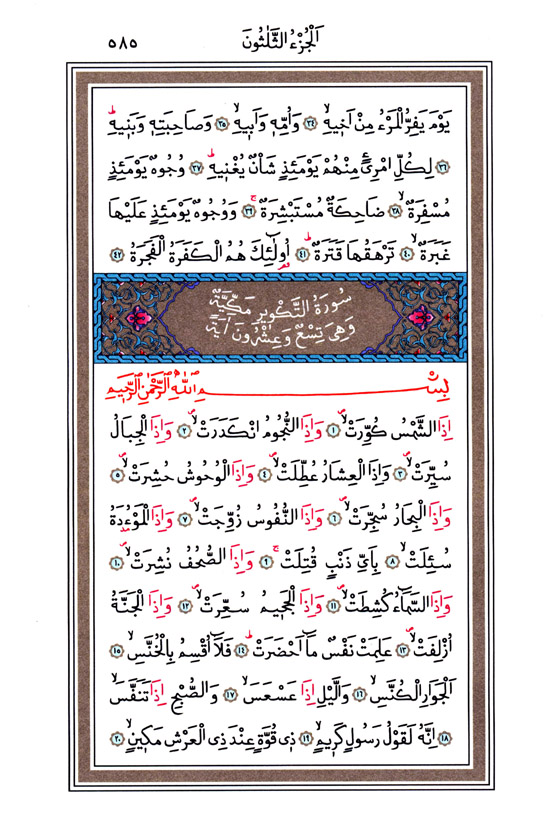 اَلْجُزْءُ الثَّلٰثُونَ ٥٨٥
يَوْمَ يَفِرُّ الْمَرْءُ مِنْ اَخ۪يهِۙ ﴿٣٤﴾ وَاُمِّه۪ وَاَب۪يهِۙ ﴿٣٥﴾ وَصَاحِبَتِه۪ وَبَن۪يهِۜ
﴿٣٦﴾ لِكُلِّ امْرِئٍ مِنْهُمْ يَوْمَئِذٍ شَأْنٌ يُغْن۪يهِۜ ﴿٣٧﴾ وُجُوهٌ يَوْمَئِذٍ
مُسْفِرَةٌۙ ﴿٣٨﴾ ضَاحِكَةٌ مُسْتَبْشِرَةٌۚ ﴿٣٩﴾ وَوُجُوهٌ يَوْمَئِذٍ عَلَيْهَا
غَبَرَةٌۙ ﴿٤٠﴾ تَرْهَقُهَا قَتَرَةٌۜ ﴿٤١﴾ اُو۬لٰٓئِكَ هُمُ الْكَفَرَةُ الْفَجَرَةُ ﴿٤٢﴾
سُورَةُ التَّكْوِيرِ مَكِّيَّةٌ
وَهِيَ تِسْعٌ وَعِشْرُونَ اٰيَةً
بِسْمِ اللّٰهِ الرَّحْمٰنِ الرَّح۪يمِ
اِذَا الشَّمْسُ كُوِّرَتْۙ ﴿١﴾ وَاِذَا النُّجُومُ انْكَدَرَتْۙ ﴿٢﴾ وَاِذَا الْجِبَالُ
سُيِّرَتْۙ ﴿٣﴾ وَاِذَا الْعِشَارُ عُطِّلَتْۙ ﴿٤﴾ وَاِذَا الْوُحُوشُ حُشِرَتْۙ ﴿٥﴾
وَاِذَا الْبِحَارُ سُجِّرَتْۙ ﴿٦﴾ وَاِذَا النُّفُوسُ زُوِّجَتْۙ ﴿٧﴾ وَاِذَا الْمَوْءُ۫دَةُ
سُئِلَتْۙ ﴿٨﴾ بِاَيِّ ذَنْبٍ قُتِلَتْۚ ﴿٩﴾ وَاِذَا الصُّحُفُ نُشِرَتْۙ ﴿١٠﴾
وَاِذَا السَّمَٓاءُ كُشِطَتْۙ ﴿١١﴾ وَاِذَا الْجَح۪يمُ سُعِّرَتْۙ ﴿١٢﴾ وَاِذَا الْجَنَّةُ
اُزْلِفَتْۙ ﴿١٣﴾ عَلِمَتْ نَفْسٌ مَٓا اَحْضَرَتْۜ ﴿١٤﴾ فَلَٓا اُقْسِمُ بِالْخُنَّسِۙ ﴿١٥﴾
اَلْجَوَارِ الْكُنَّسِۙ ﴿١٦﴾ وَالَّيْلِ اِذَا عَسْعَسَۙ ﴿١٧﴾ وَالصُّبْحِ اِذَا تَنَفَّسَۙ
﴿١٨﴾ اِنَّهُ لَقَوْلُ رَسُولٍ كَر۪يمٍۙ ﴿١٩﴾ ذ۪ي قُوَّةٍ عِنْدَ ذِي الْعَرْشِ مَك۪ينٍۙ ﴿٢٠﴾